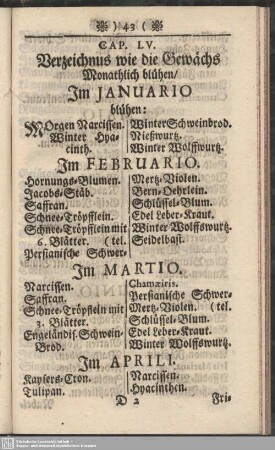 ) 43 (
CAP. LV.
Verzeichnus wie die Gewächs
Monathlich blühen/
Im JANUARIO
blühen:
MOrgen Narcissen.
Winter Hya-
cinth.
WinterSchweinbrod.
Nießwurtz.
Winter Wolffwurtz.
Im FEBRUARIO.
Hornungs-Blumen.
Jacobs-Stäb.
Saffran.
Schnee-Tröpfflein.
Schnee-Tröpfflein mit
6. Blätter. (tel.
Persianische Schwer-
Mertz-Violen.
Bern-Oehrlein.
Schlüssel-Blum.
Edel Leber-Kraut.
Winter Wolffswurtz.
Seidelbast.
Im MARTIO.
Narcissen.
Saffran.
Schnee-Tröpflein mit
3. Blätter.
Engeländis. Schwein-
Brod.
Chamæiris.
Persianische Schwer-
Mertz-Violen. (tel.
Schlüssel-Blum.
Edel Leber-Kraut.
Winter Wolffswurtz.
Im APRILI.
Kaysers-Cron.
Tulipan.
Narcissen.
Hyacinthen.
D 2
Fri-